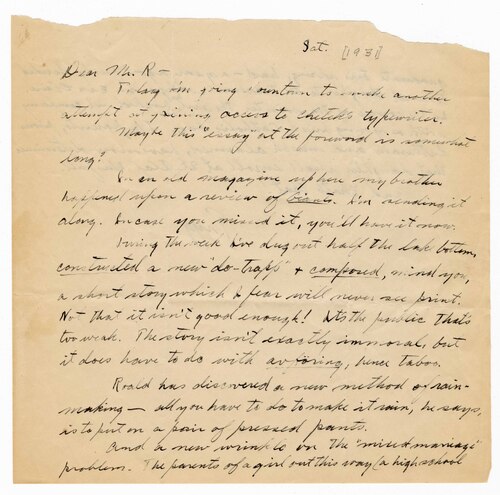 Sat. [1931]
Dear Mr. R—
Today I'm going downtown to make another
attempt at gaining access to Chetek's typewriter.
Maybe this "essay" at the foreword is somewhat
long?
In an old magazine up here my brother
happened upon a review of Giants. I'm sending it
along. In case you missed it, you'll have it now.
During the week I've dug out half the lake bottom,
constructed a new "do-trap" + composed, mind you,
a short story which I fear will never see print.
Not that it isn't good enough! It's the public that's
too weak. The story isn't exactly immoral, but
it does have to do with , hence taboo.
Roald has discovered a new method of rain-
making — all you have to do to make it rain, he says,
is to put on a pair of pressed pants.
And a new wrinkle on the "mixed marriage"
problem. The parents of a girl out this way (a high school